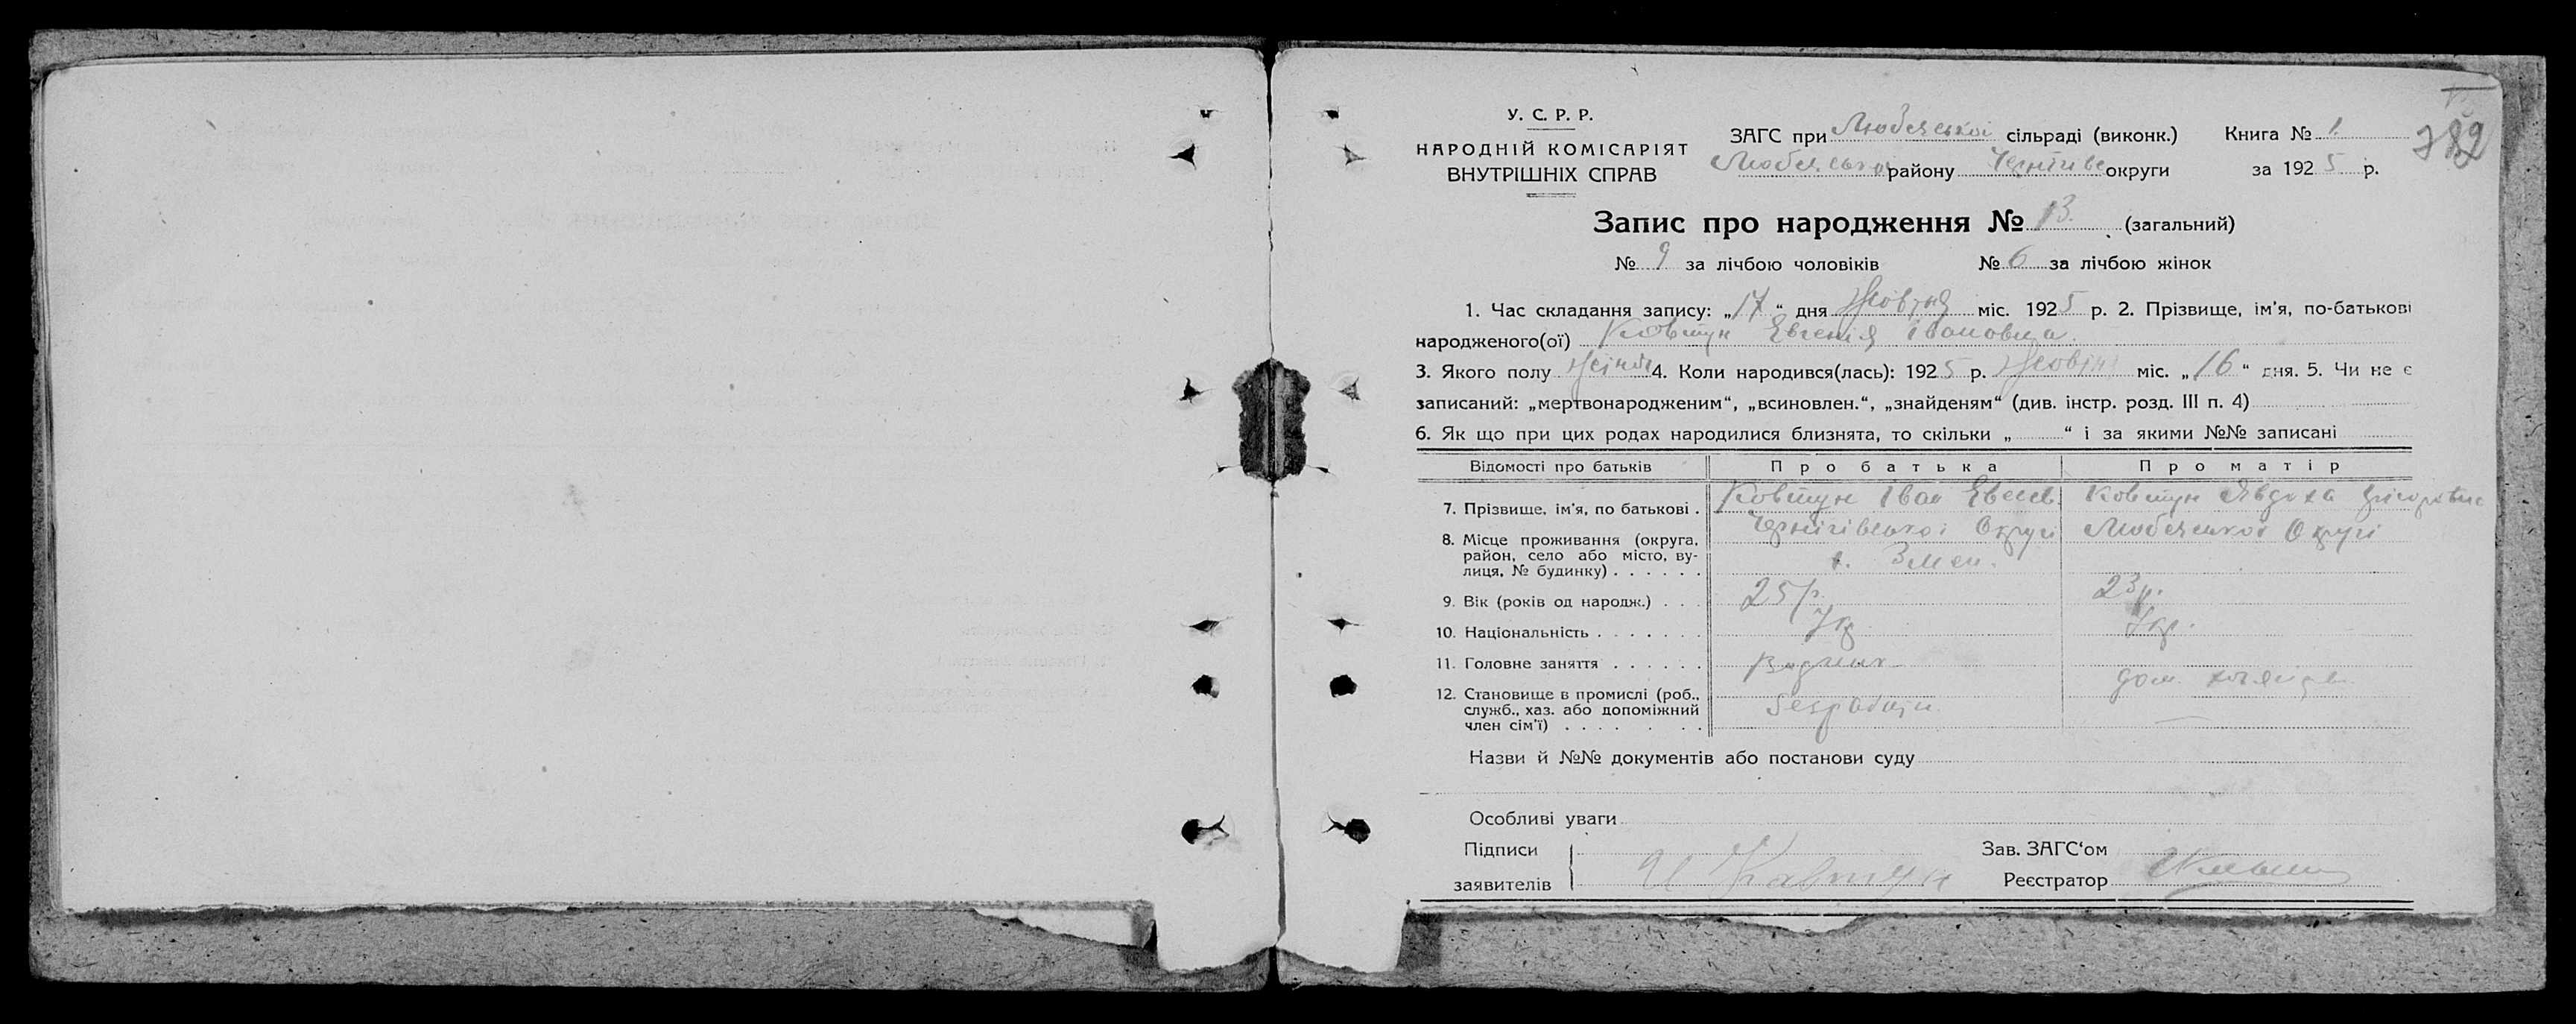 У. С. Р. Р.
НАРОДНІЙ КОМІСАРІЯТ
ВНУТРІШНІХ СПРАВ
ЗАГС при Любеської сільраді (виконк.) Книга № 1.
району округи за 1925 р.
782
Запис про народження № 13. (загальний)
№ 9 за лічбою чоловіків № 6 за лічбою жінок
1. Час складання запису: „17“ дня Жовтня міс. 1925 р. 2. Прізвище, ім'я, по-батькові
народженого(ої) Ковтун Евгенія Івановна.
3. Якого полу 4. Коли народився(лась): 1925 р. Жовтня міс. „16“ дня. 5. Чи не є
записаний: „мертвонародженим“, „всиновлен.“, „знайденям“ (див. інстр. розд. III п. 4)
6. Як що при цих родах народилися близнята, то скільки „ “ і за якими №№ записані
Відомості про батьків Про батька Про матір
7. Прізвище, ім'я, по батькові . Ковтун Іван Ковтун Явдоха
8. Місце проживання (округа, Чернігівської Округи Округи
район, село або місто, ву-
лиця, № будинку) . . . . . .
9. Вік (років од народж.) . . . 25 р. 23 р.
10. Національність . . . . . . . Укр. Укр.
11. Головне заняття . . . . . .
12. Становище в промислі (роб., дом.
служб., хаз. або допоміжний
член сім'ї) . . . . . . .
Назви й №№ документів або постанови суду
Особливі уваги
Підписи Зав. ЗАГС'ом
заявителів И Кавтун Реєстратор